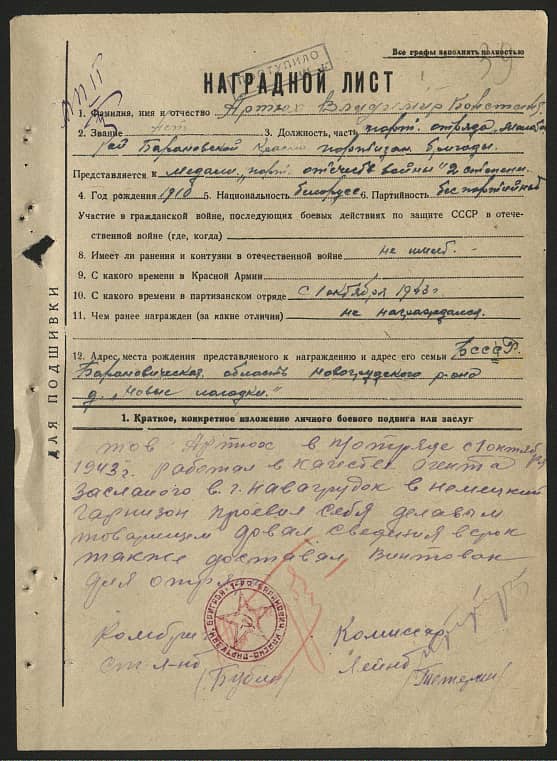 Все графы заполнять полностью
ПОСТУПИЛО
39
НАГРАДНОЙ ЛИСТ
1. Фамилия, имя и отчество Артюх Владимир Констант
2. Звание нет 3. Должность, часть парт. отряда
Барановской Красно партизан бригады.
Представляется к медали „парт. отечеств войны" 2 степени.
4. Год рождения 1918 5. Национальность белорусс 6. Партийность беспартийный
Участие в гражданской войне, последующих боевых действиях по защите СССР в отече-
ственной войне (где, когда)
8. Имеет ли ранения и контузии в отечественной войне не имеб.
9. С какого времени в Красной Армии
10. С какого времени в партизанском отряде с 1 октября 1943 г.
11. Чем ранее награжден (за какие отличия) не награждался.
12. Адрес места рождения представляемого к награждению и адрес его семьи БССР.
Барановическая область Новогрудского р-она
д. „Новые лагодки."
ДЛЯ ПОДШИВКИ
1. Краткое, конкретное изложение личного боевого подвига или заслуг
тов. Артюх в п/отряде с 1 октяб
1943 г. работал в качестве агента
засланого в г. Навагрудок в немецкий
гарнизон проевил себя делавым
товарищем довал сведения в срок
также доставал винтовак
для отря
Комбриг Комиссар
ст л-нт Лейнт